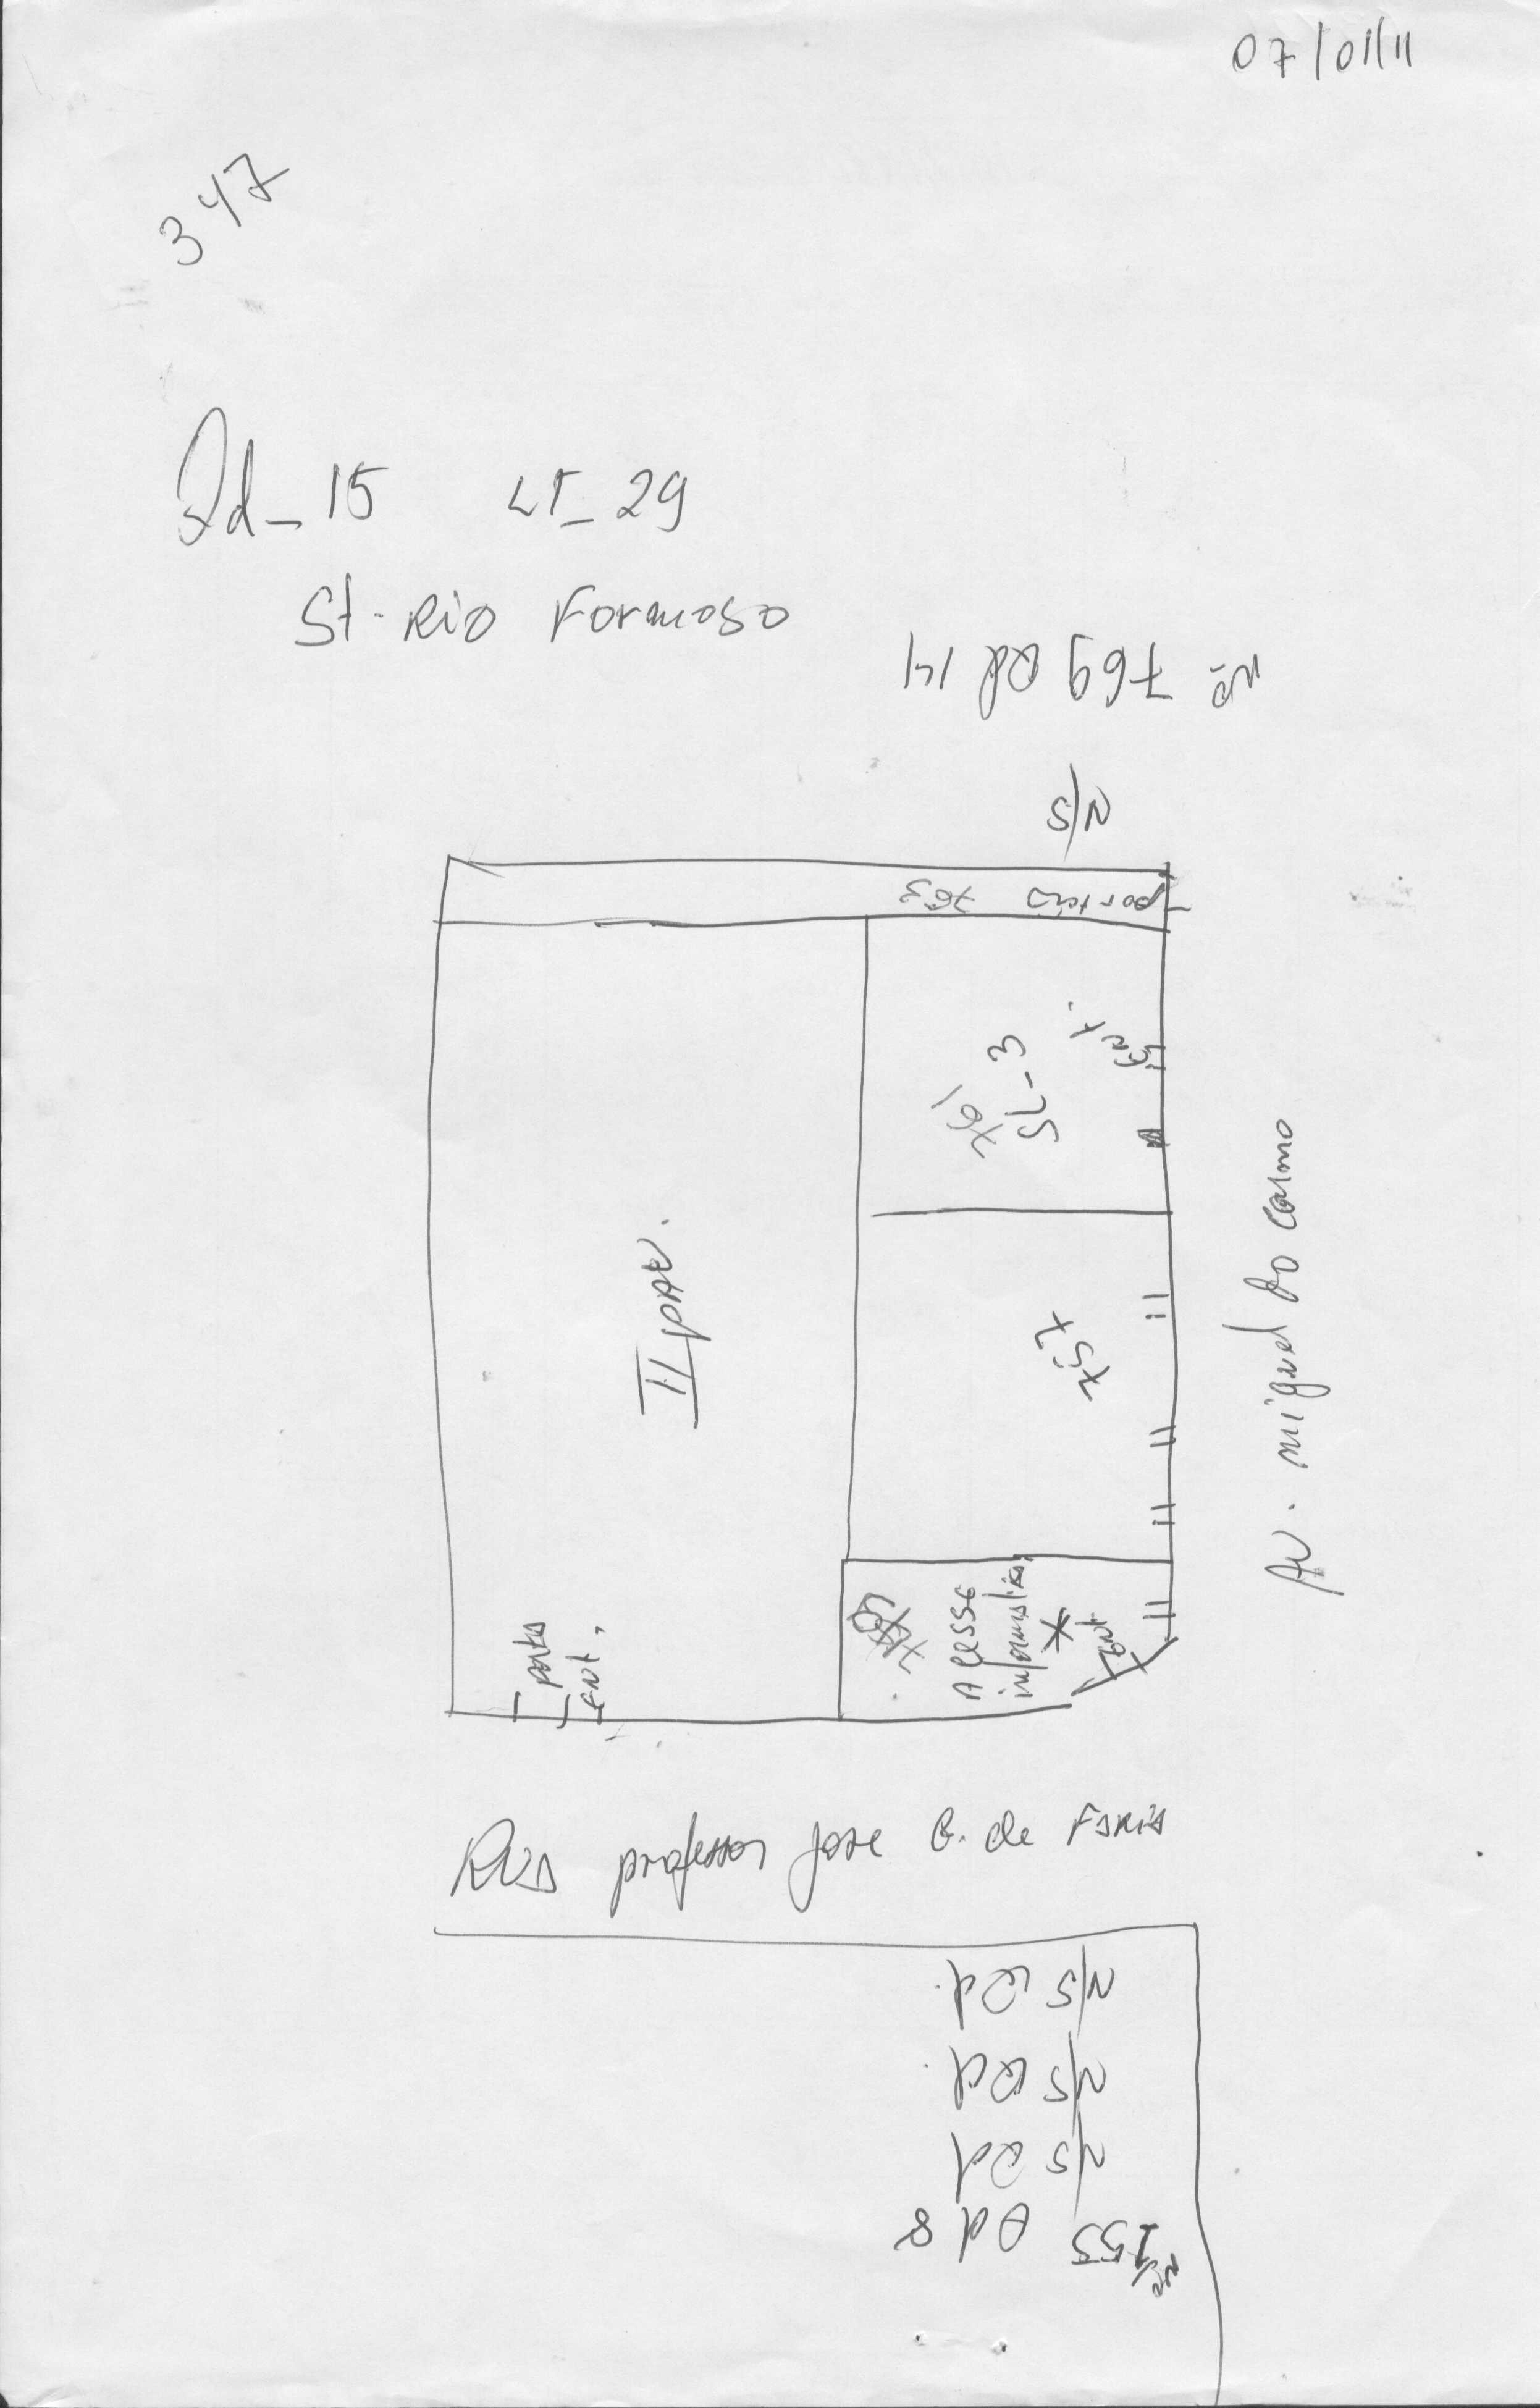 07/01/11
347
Qd_15 LT_29
St. Rio Formoso
nº 769 Qd 14
N/S
portão 763
761
SL-3
Ent.
757
II pav.
Av. miguel do carmo
porta
Ent.
Acesse
informática
*
Ent.
RUA professor jose B. de FARIA
N/S Qd.
N/S Qd.
N/S Qd
nº 155 Qd 8